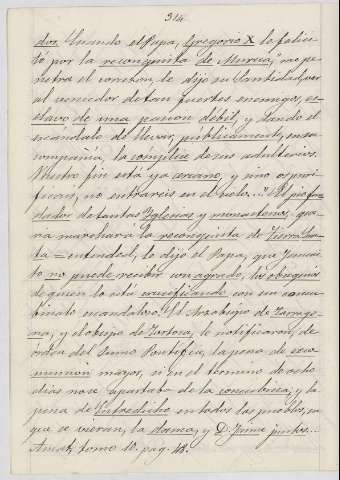 314.
dor. Cuando el Papa, Gregorio X le felici-
tó por la reconquista de Murcia, "me pe-
netra el corazon, le dijo su Santidad, ver
al vencedor de tan fuertes enemigos, es-
clavo de una pasion débil, y dando el
escándalo de llevar, publicament, en su
compañia, la complice de sus adulterios.
Vuestro fin está ya cercano, y sino os puri-
ficais, no entrareis en el cielo..." El pio fun-
dador de tantas Iglesias y monasterios, que-
ria marchar á la reconquista de Tierra San-
ta = entended, le dijo el Papa, que Jesucris-
to no puede recibir con agrado, los obsequios
de quien lo está crucificando con un concu-
binato escandaloso. El Arzobispo de Tarrago-
na, y el obispo de Tortosa, le notificaron, de
órden del Sumo Pontifice, la pena de exco-
munion mayor, si en el término de ocho
dias no se apartaba de la concubina, y la
pena de Entredicho en todos los pueblos, en
que se vieran, la dama, y D. Jaime juntos...
Amat, tomo 10. pag. 48.